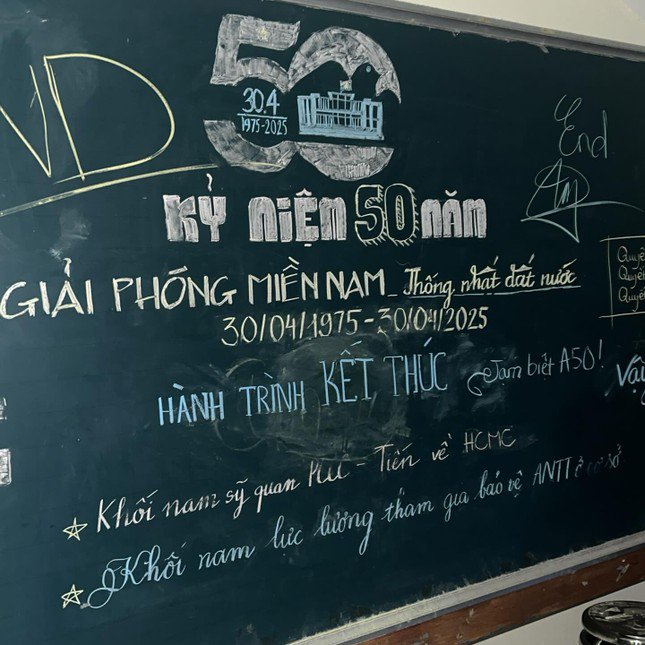 VD
50
30.4
1975-2025
End
KỶ NIỆM 50 NĂM
GIẢI PHÓNG MIỀN NAM_Thống nhất đất nước
30/04/1975-30/04/2025
Quyế
Quyết
Quyế
HÀNH TRÌNH KẾT THÚC
Tạm biệt A50!
Vậy
Khối nam sỹ quan - Tiến về HCMC
Khối nam lực lượng tham gia bảo vệ ANTT ở cơ sở